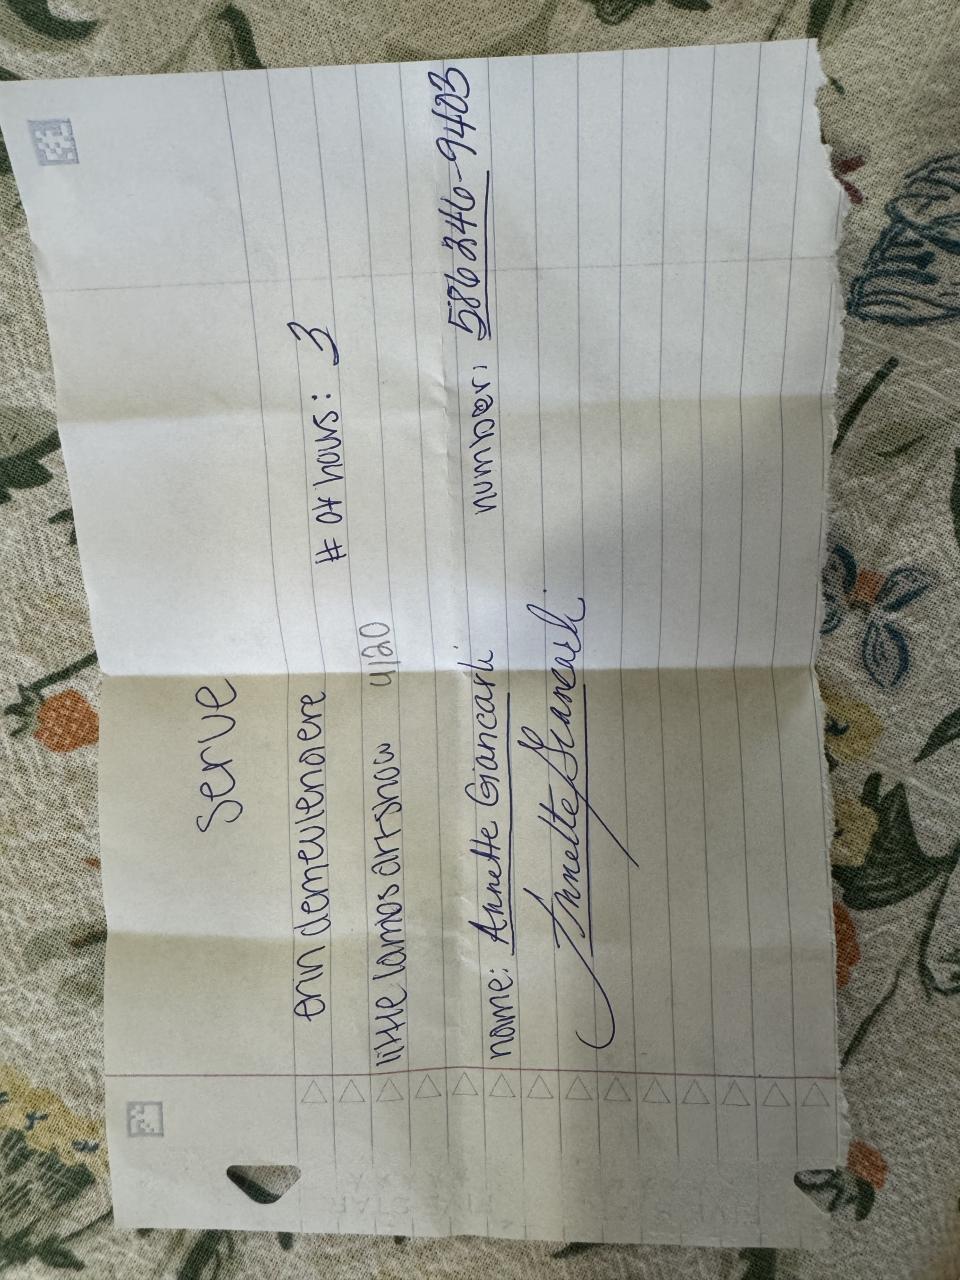 serve
erin demeulenaere # of hours: 3
little lambs art show 4/20
name: Annette Giancarli number: 586 246-9403
Annette Giancarli
FIVE STAR